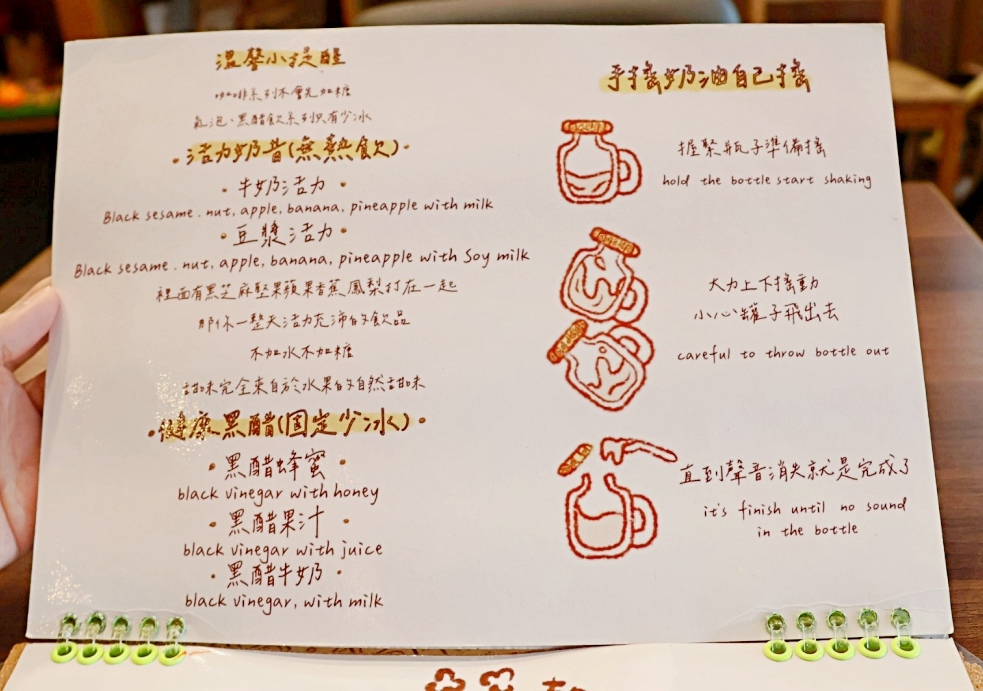 溫馨小提醒
咖啡系列不會先加糖
氣泡、黑醋飲系列只有少冰
活力奶昔(無熱飲)
牛奶活力
Black sesame. nut, apple, banana, pineapple with milk
豆漿活力
Black sesame. nut, apple, banana, pineapple with Soy milk
裡面有黑芝麻堅果蘋果香蕉鳳梨打在一起
那你一整天活力充沛的飲品
不加水不加糖
甜味完全來自於水果的自然甜味
健康黑醋(固定少冰)
黑醋蜂蜜
black vinegar with honey
黑醋果汁
black vinegar with juice
黑醋牛奶
black vinegar, with milk
手搖奶油自己搖
握緊瓶子準備搖
hold the bottle start shaking
大力上下搖動
小心罐子飛出去
careful to throw bottle out
直到聲音消失就是完成了
it's finish until no sound
in the bottle